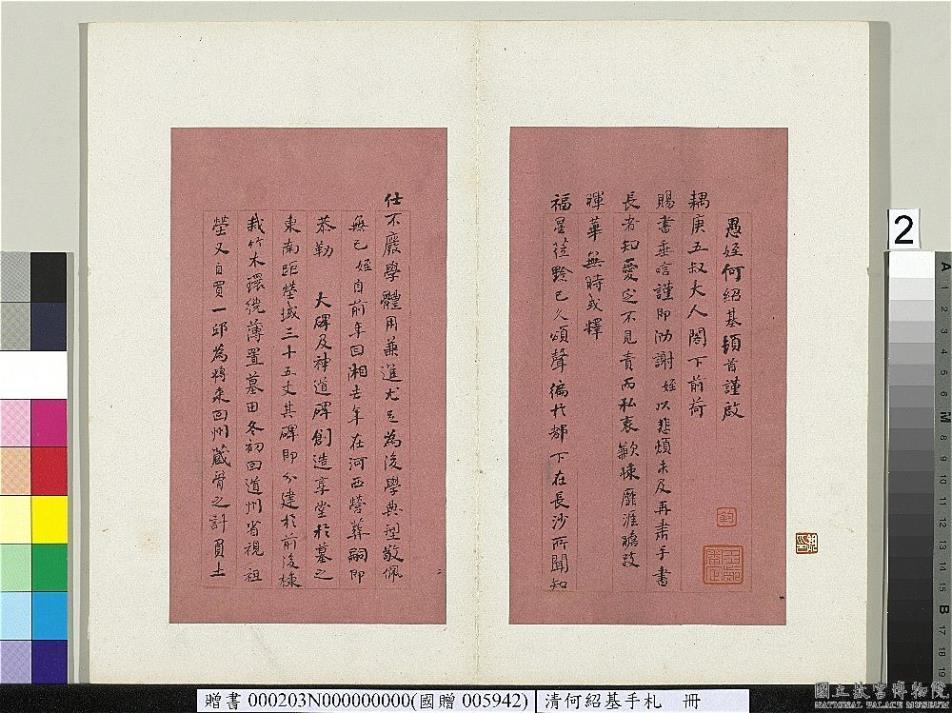 愚姪何紹基頓首謹啟
耦庚五叔大人閣下前荷
賜書垂唁謹即泐謝姪以悲煩未及再肅手書
長者知愛必不見責而私衷歉悚靡涯瞻企
暉華無時或釋
福星蒞黔已久頌聲徧於都下在長沙所聞知
仕不廢學體用兼進尤足為後學典型敬佩
無已姪自前年回湘去年在河西營葬嗣即
恭勒 大碑及神道碑創造享堂於墓之
東南距塋域三十五丈其碑即分建於前後棟
栽竹木環繞薄置墓田冬初回道州省視祖
塋又自買一邱為將來回州藏骨之計買土
2
A 1 2 3 4 5 6 M 8 9 10 11 12 13 14 15 B 17 18 19
贈書 000203N000000000(國贈 005942) 清何紹基手札 冊
國立故宮博物院
NATIONAL PALACE MUSEUM